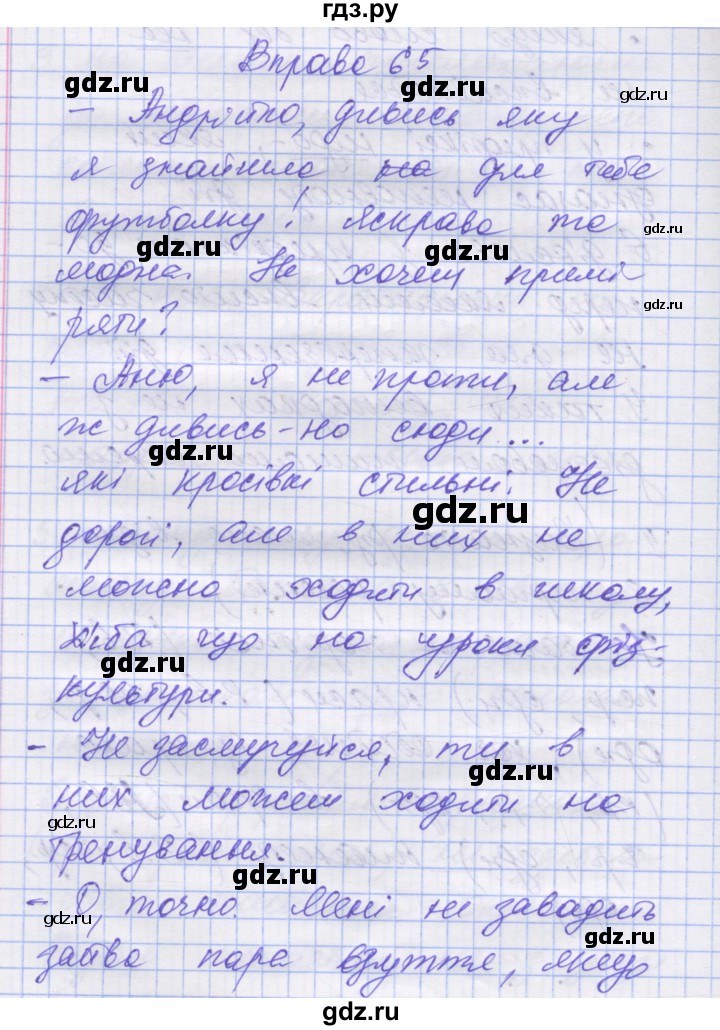 гдз.ру
Вправа 65
gdz.ru
gdz.ru
– Андрійко, дивись яку
я знайшла на для тебе
футболку! яскрава та
gdz.ru
gdz.ru
gdz.ru
модна. Не хочеш примі
gdz.ru
ряти?
– Аню, я не проти, але
ж дивись-но сюди...
gdz.ru
які красівкі стильні. Не
gdz.ru
дорогі, але в них не
можно ходити в школу,
хіба що на уроки фіз-
gdz.ru
gdz.ru
культури.
– Не засмучуйся, ти в
gdz.ru
них можеш ходити на
gdz.ru
тренування.
gdz.ru
– О, точно. Мені не завадить
gdz.ru
gdz.ru
зайва пара взуття, якщо
gdz.ru